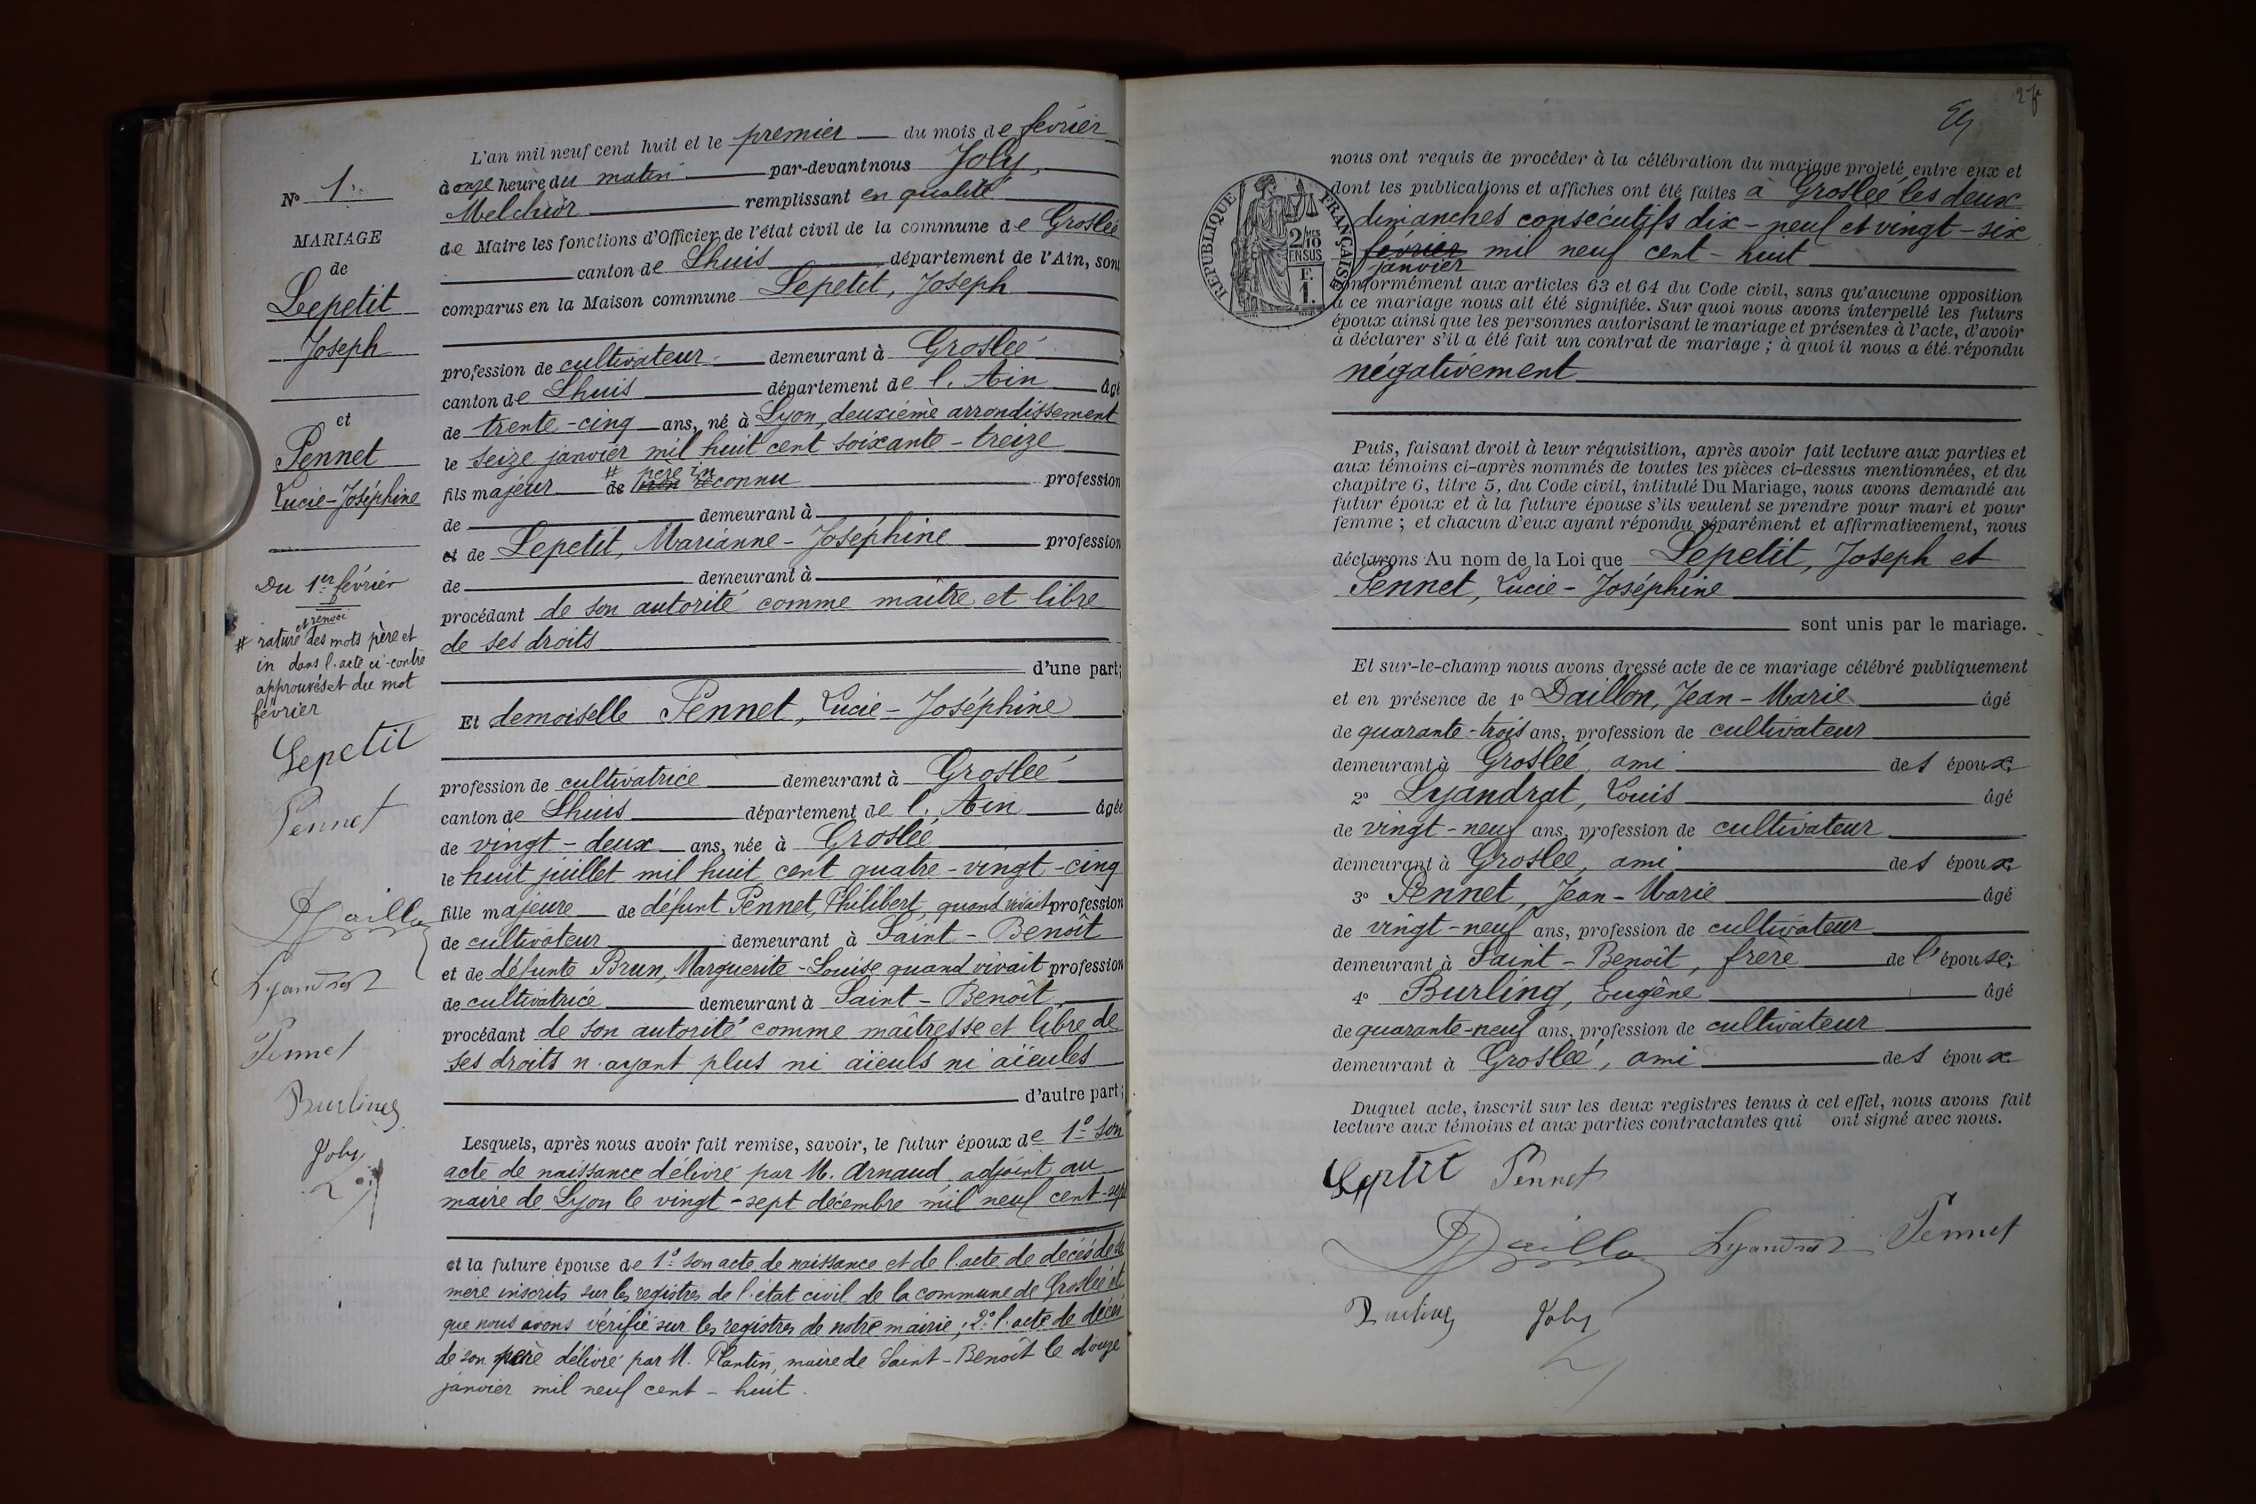 L'an mil neuf cent huit et le premier du mois de février
à onze heure du matin par-devant nous Joly,
Melchior remplissant en qualité
de Maire les fonctions d'Officier de l'état civil de la commune de Groslée
canton de Lhuis département de l'Ain, sont
comparus en la Maison commune Lepetit, Joseph
profession de cultivateur demeurant à Groslée
canton de Lhuis département de l'Ain âgé
de trente-cinq ans, né à Lyon, deuxième arrondissement
le seize janvier mil huit cent soixante-treize
# père in
fils majeur de connu profession
de demeurant à
et de Lepetit, Marianne-Joséphine profession
de demeurant à
procédant de son autorité comme maître et libre
de ses droits
d'une part;
Et demoiselle Pennet, Lucie-Joséphine
profession de cultivatrice demeurant à Groslée
canton de Lhuis département de l'Ain âgée
de vingt-deux ans, née à Groslée
le huit juillet mil huit cent quatre-vingt-cinq
fille majeure de défunt Pennet, Philibert, quand vivait profession
de cultivateur demeurant à Saint-Benoît
et de défunte Brun, Marguerite-Louise quand vivait profession
de cultivatrice demeurant à Saint-Benoît,
procédant de son autorité comme maîtresse et libre de
ses droits n'ayant plus ni aïeuls ni aïeules
d'autre part;
Lesquels, après nous avoir fait remise, savoir, le futur époux de 1° son
acte de naissance délivré par M. Arnaud, adjoint au
maire de Lyon le vingt-sept décembre mil neuf cent-sept
et la future épouse de 1° son acte de naissance et de l'acte de décès de sa
mère inscrits sur les registres de l'état civil de la commune de Groslée et
que nous avons vérifié sur les registres de notre mairie; 2° l'acte de décès
de son père délivré par M. Plantin, maire de Saint-Benoît le douze
janvier mil neuf cent-huit.
N° 1.
MARIAGE
de
Lepetit
Joseph
et
Pennet
Lucie-Joséphine
Du 1er février
et renvoi
# rature des mots père et
in dans l'acte ci-contre
approuvés et du mot
février
Lepetit
Pennet
Daillon
Lyandrat
Pennet
Burling
Joly
nous ont requis de procéder à la célébration du mariage projeté entre eux et
dont les publications et affiches ont été faites à Groslée les deux
dimanches consécutifs dix-neuf et vingt-six
février mil neuf cent-huit
janvier
RÉPUBLIQUE FRANÇAISE
2/10 EN SUS
F. 1.
conformément aux articles 63 et 64 du Code civil, sans qu'aucune opposition
à ce mariage nous ait été signifiée. Sur quoi nous avons interpellé les futurs
époux ainsi que les personnes autorisant le mariage et présentes à l'acte, d'avoir
à déclarer s'il a été fait un contrat de mariage; à quoi il nous a été répondu
négativement
Puis, faisant droit à leur réquisition, après avoir fait lecture aux parties et
aux témoins ci-après nommés de toutes les pièces ci-dessus mentionnées, et du
chapitre 6, titre 5, du Code civil, intitulé Du Mariage, nous avons demandé au
futur époux et à la future épouse s'ils veulent se prendre pour mari et pour
femme; et chacun d'eux ayant répondu séparément et affirmativement, nous
déclarons Au nom de la Loi que Lepetit, Joseph et
Pennet, Lucie-Joséphine
sont unis par le mariage.
Et sur-le-champ nous avons dressé acte de ce mariage célébré publiquement
et en présence de 1° Daillon, Jean-Marie âgé
de quarante-trois ans, profession de cultivateur
demeurant à Groslée, ami des époux;
2° Lyandrat, Louis âgé
de vingt-neuf ans, profession de cultivateur
demeurant à Groslée, ami des époux
3° Pennet, Jean-Marie âgé
de vingt-neuf ans, profession de cultivateur
demeurant à Saint-Benoît, frère de l'épouse;
4° Burling, Eugène âgé
de quarante-neuf ans, profession de cultivateur
demeurant à Groslée, ami des époux
Duquel acte, inscrit sur les deux registres tenus à cet effet, nous avons fait
lecture aux témoins et aux parties contractantes qui ont signé avec nous.
Lepetit Pennet
Daillon Lyandrat Pennet
Burling Joly